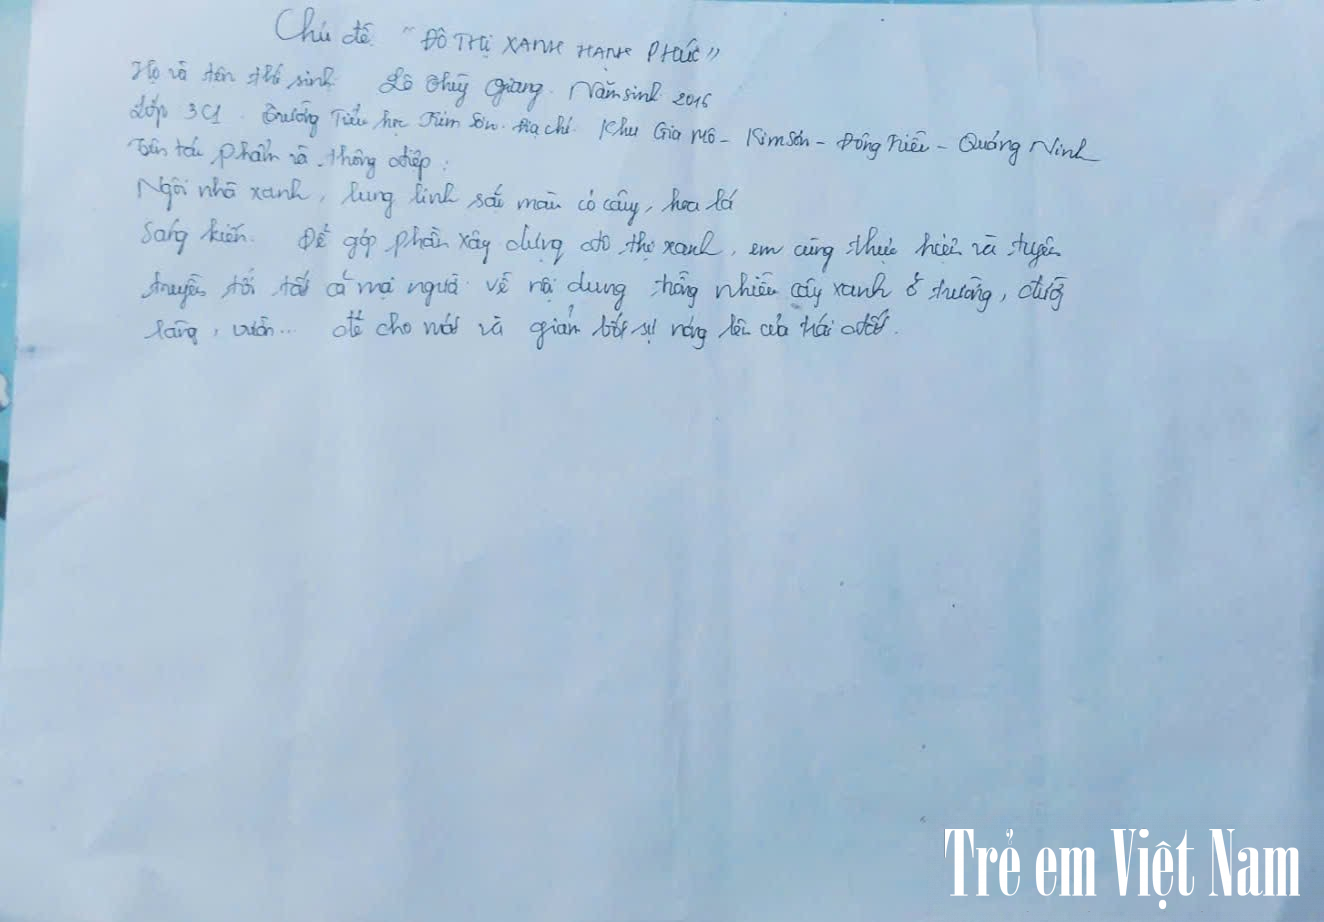 Chủ đề. "ĐÔ THỊ XANH HẠNH PHÚC"
Họ và tên thí sinh Lê Thùy Giang. Năm sinh 2016
Lớp 3C1. Trường Tiểu học Kim Sơn. Địa chỉ. Khu Gia Mô - Kim Sơn - Đông Triều - Quảng Ninh
Tên tác phẩm và thông điệp:
Ngôi nhà xanh, lung linh sắc màu có cây, hoa lá
Sáng kiến. Để góp phần xây dựng đô thị xanh, em cùng thực hiện và tuyên
truyền tới tất cả mọi người về nội dung trồng nhiều cây xanh ở trường, đường
làng, vườn... để cho mát và giảm bớt sự nóng lên của trái đất.
Trẻ em Việt Nam